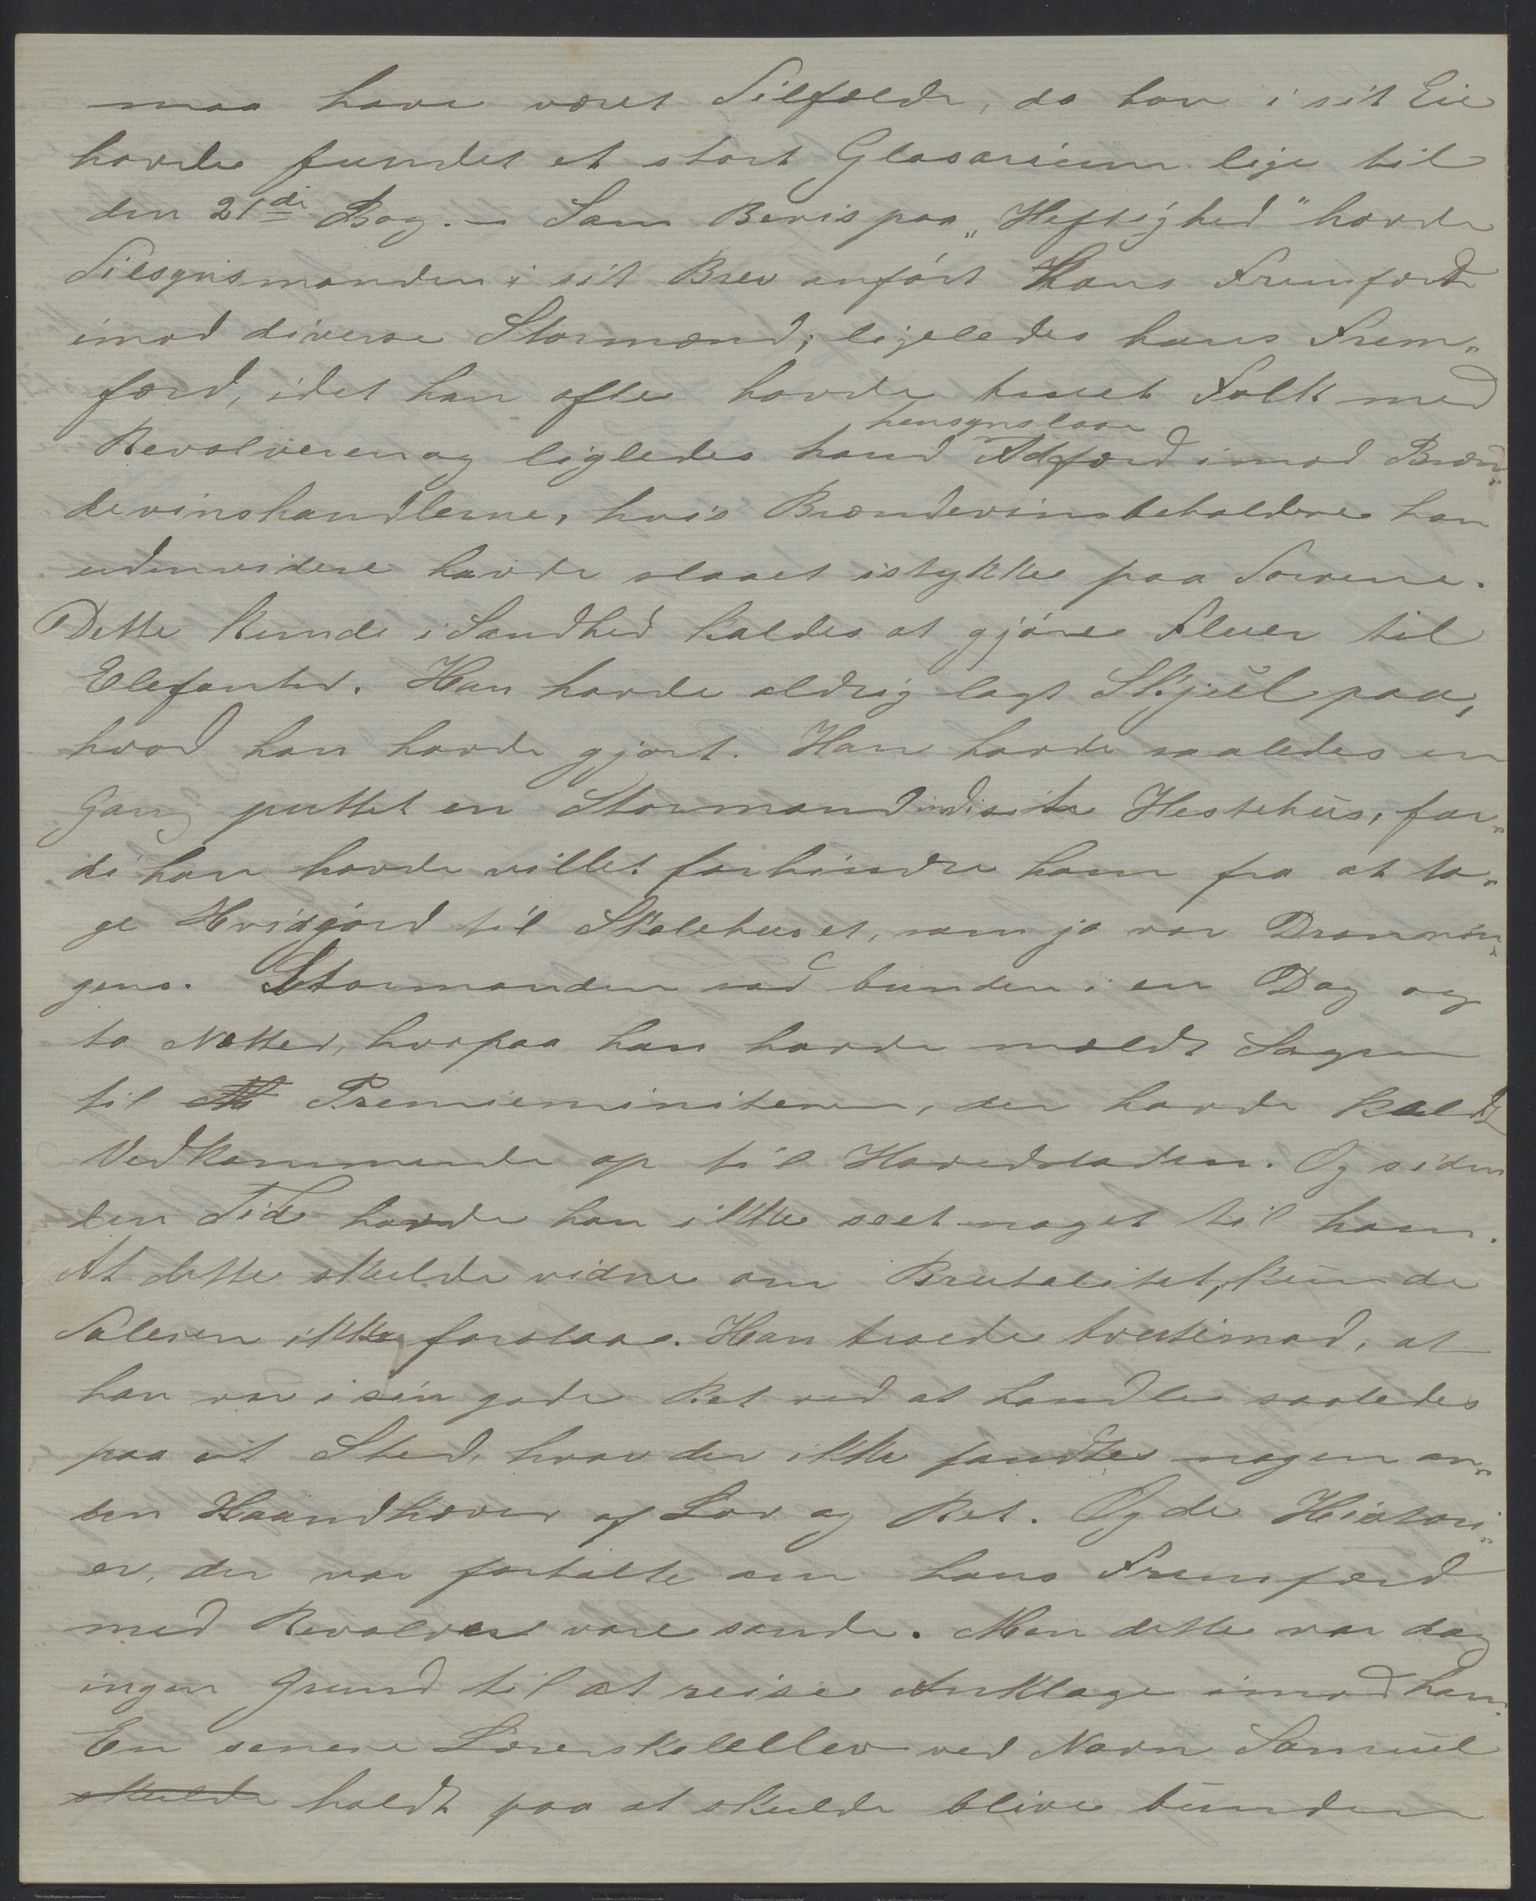 maa have været Tilfælde, da han i sit Eie
havde fundet et stort Glosarium lige til
den 21de Bog. – Som Bevis paa „Heftighed" havde
Tilsynsmanden i sit Brev anført Hans Fremfærd
imod diverse Stormænd; ligeledes hans Frem„
færd, idet han ofte havde truet Folk med
Revolveren og ligledes hans hensynsløse Adfærd imod Bræn„
devinshandlerne, hvis Brændevinsbeholdere han
udenvidere havde slaaet istykker paa Torvene.
Dette kunde i Sandhed kaldes at gjöre Fluer til
Elefanter. Han havde aldrig lagt Skjul paa,
hvad han havde gjort. Han havde saaledes en
Gang puttet en Stormand ind i sit Hestehus, for„
di han havde villet forhindre ham fra at ta„
ge Hvidjord til Skolehuset, som jo var Dronnin„
gens. Stormanden sad bunden i en Dag og
to Nætter, hvorpaa han havde meldt Sagen
til Premieministeren, der havde kaldt
Vedkommende op til Hovedstaden. Og siden
den Tid havde han ikke seet noget til ham.
At dette skulde vidne om Brutalitet, kunde
Taleren ikke forstaae. Han troede tvertimod, at
han var i sin gode Ret ved at handle saaledes
paa et Sted, hvor der ikke fandtes nogen an„
den Haandhæver af Lov og Ret. Og de Histori„
er, der var fortalte om hans Fremfærd
med Revolver vare sande. Men dette var dog
ingen Grund til at reise Anklage imod ham.
En senere Lærerskoleelev ved Navn Samuel
skulde holdt paa at skulde blive bunden